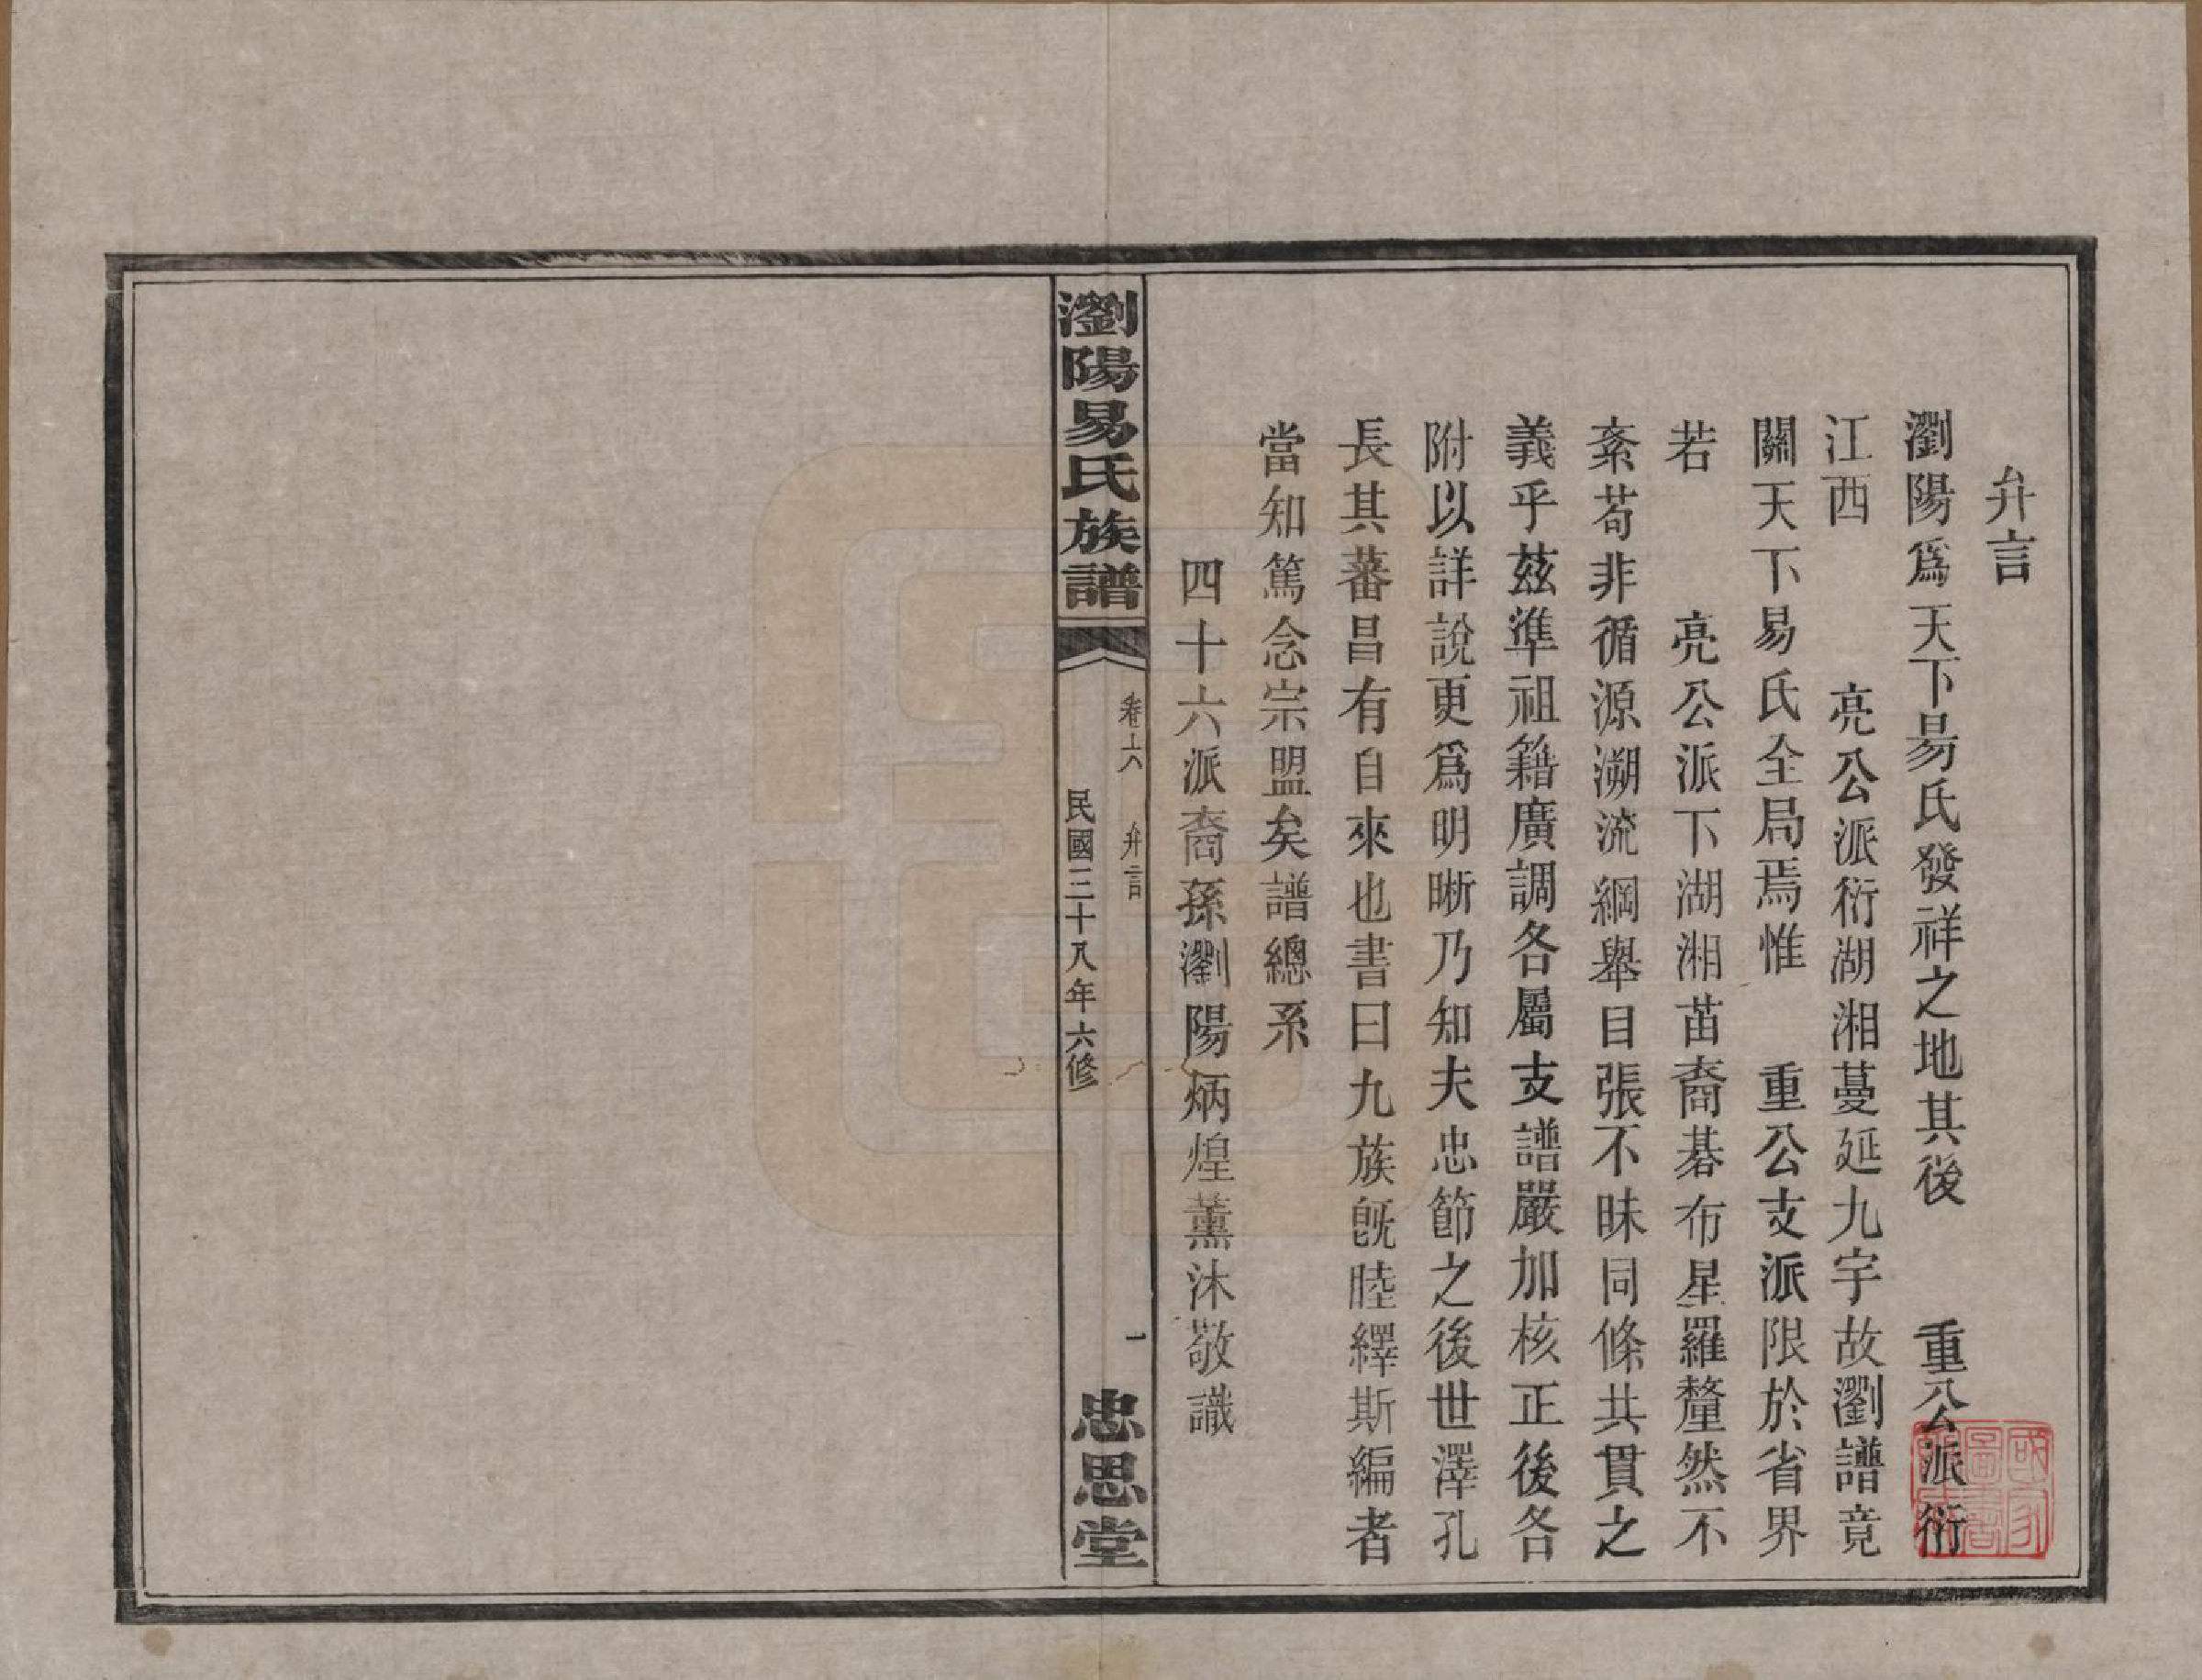 弁言
瀏陽爲天下易氏發祥之地其後　重公派衍
江西　亮公派衍湖湘蔓延九宇故瀏譜竟
關天下易氏全局焉惟　重公支派限於省界
若　亮公派下湖湘苗裔碁布星羅釐然不
紊苟非循源溯流綱舉目張不昧同條共貫之
義乎茲準祖籍廣調各屬支譜嚴加核正後各
附以詳說更爲明晰乃知夫忠節之後世澤孔
長其蕃昌有自來也書曰九族旣睦繹斯編者
當知篤念宗盟矣譜總系
四十六派裔孫瀏陽炳煌薰沐敬識
瀏陽易氏族譜
卷六　弁言
一
民國三十八年六修
忠思堂